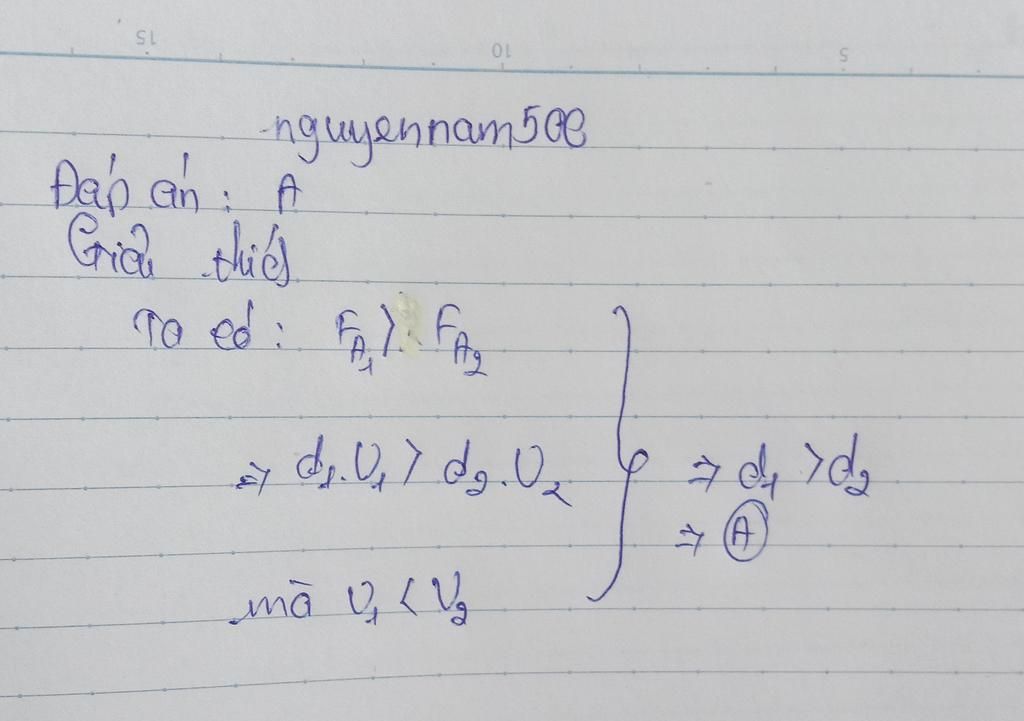 15 10 5
nguyennam500
Đáp án: A
Giải thích
Ta có: F_{A_1} > F_{A_2}
⇒ d_1.V_1 > d_2.V_2 ⇒ d_1 > d_2
⇒ A
mà V_1 < V_2